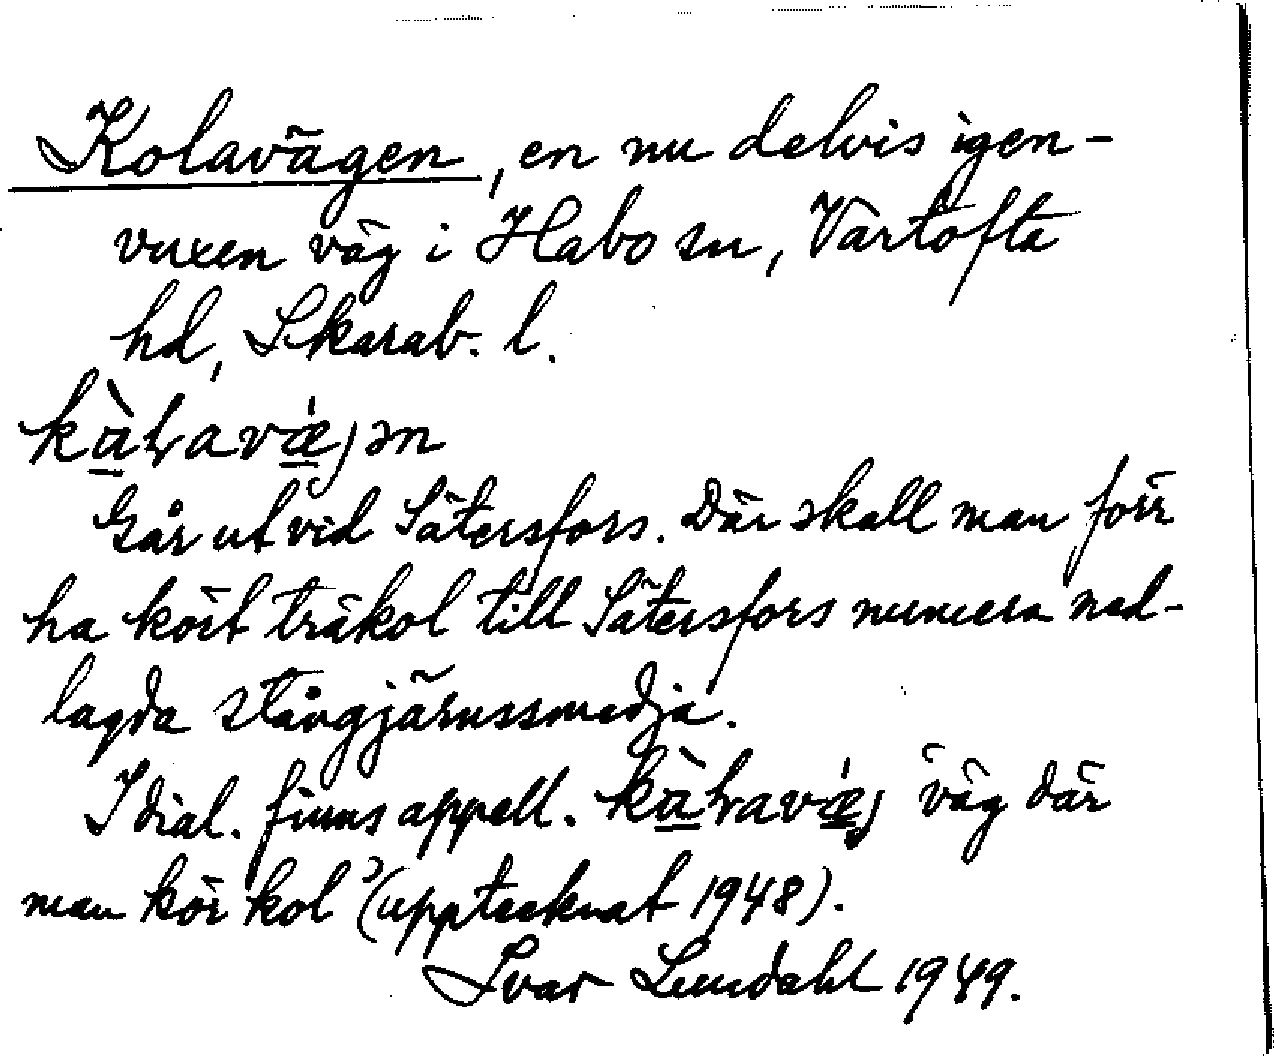 Kolavägen, en nu delvis igen-
vuxen väg i Habo sn, Vartofta
hd, Skarab. l.
kàɽavǽjən
Går ut vid Sätersfors. Där skall man förr
ha kört träkol till Sätersfors numera ned-
lagda stångjärnssmedja.
I dial. finns appell. kàɽavǽj ‘väg där
man kör kol’ (upptecknat 1948).
Ivar Lundahl 1949.